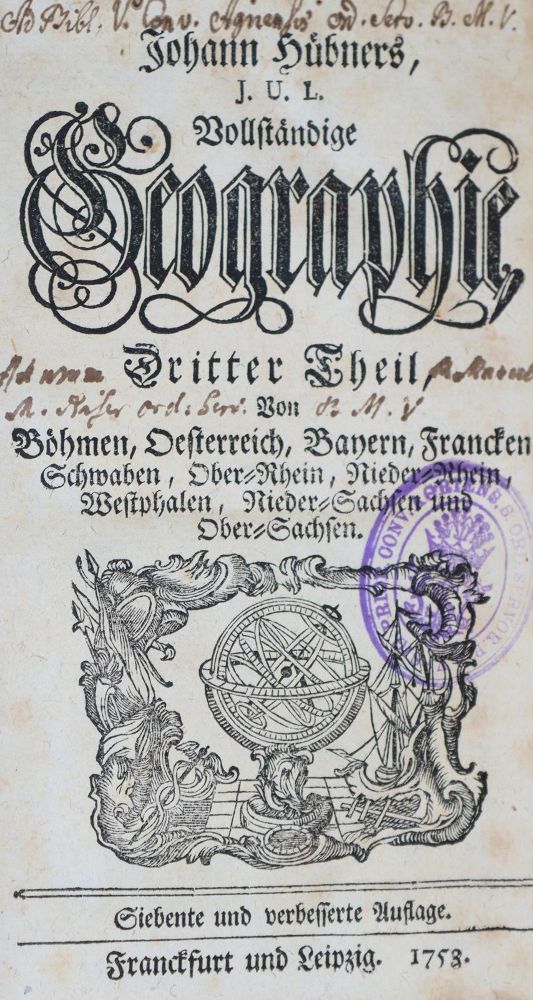 Ad Bibl. V. Conv. Agnensis ord. Serv. B. M. V.
Johann Hübners,
J. U. L.
Vollständige
Geographie,
Dritter Theil,
Von
B. M. V
Böhmen, Oesterreich, Bayern, Francken
Schwaben, Ober-Rhein, Nieder-Rhein,
Westphalen, Nieder-Sachsen und
Ober-Sachsen.
Siebente und verbesserte Auflage.
Franckfurt und Leipzig. 1753.